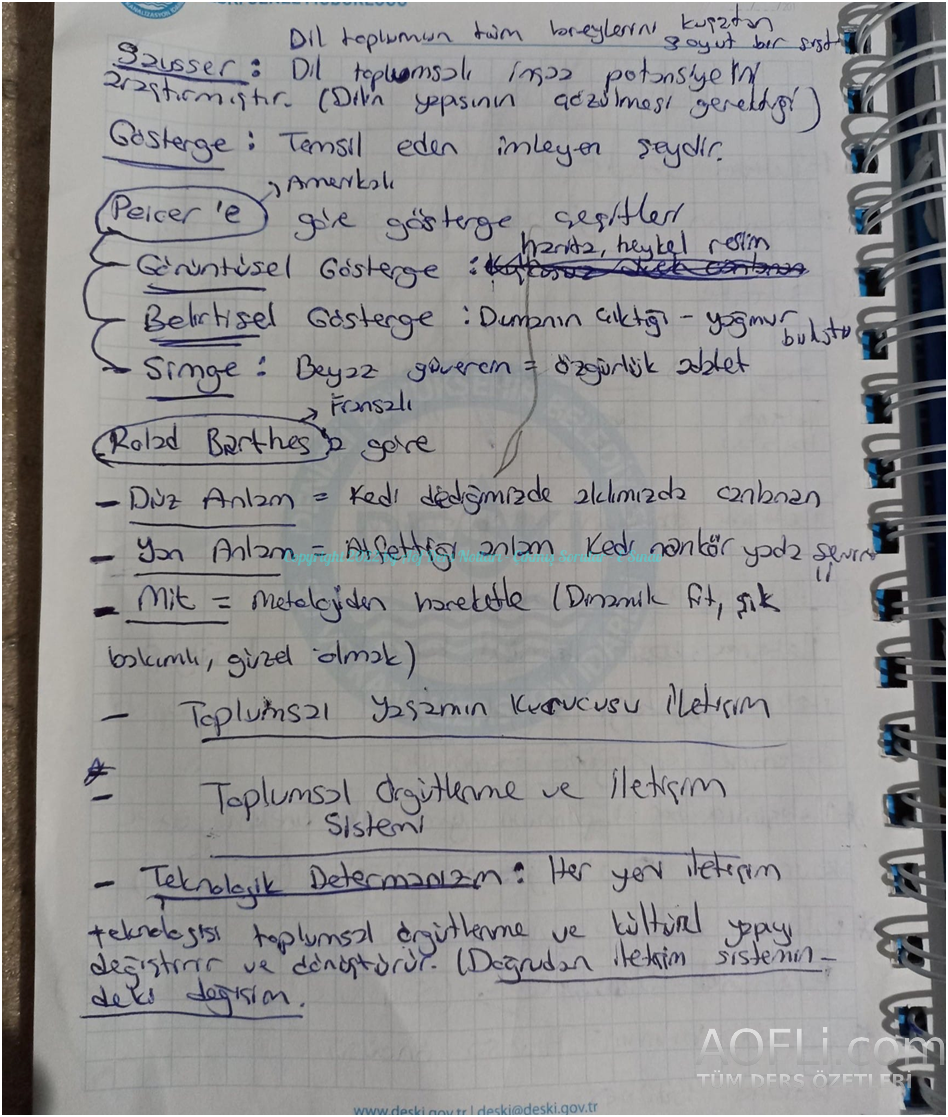 Dil toplumun tüm bireylerini kuşatan
soyut bir sist
Sausser : Dil toplumsalı inşaa potansiyelini
araştırmıştır. (Dilin yapısının çözülmesi gerektiği)
Gösterge : Temsil eden imleyen şeydir.
Amerikalı
Peicer'e göre gösterge çeşitleri
harita, heykel resim
- Görüntüsel Gösterge :
- Belirtisel Gösterge : Dumanın çıktığı - yağmur
bulutu
- Simge : Beyaz güvercin = özgürlük adalet
Fransalı
Rolad Barthes'a göre
- Düz Anlam = Kedi dediğimizde aklımızda canlanan
- Yan Anlam = Atfettiği anlam Kedi nankör yada sevim
li
- Mit = Metolojiden hareketle (Dinamik fit, şık
bakımlı, güzel olmak)
- Toplumsal Yaşamın Kurucusu İletişim
- Toplumsal Örgütlenme ve İletişim
Sistemi
- Teknolojik Determanizm : Her yeni iletişim
teknolojisi toplumsal örgütlenme ve kültürel yapıyı
değiştirir ve dönüştürür. (Doğrudan iletişim sistemin-
deki değişim.
AOFLi.com
TÜM DERS ÖZETLERİ
www.deski.gov.tr | deski@deski.gov.tr